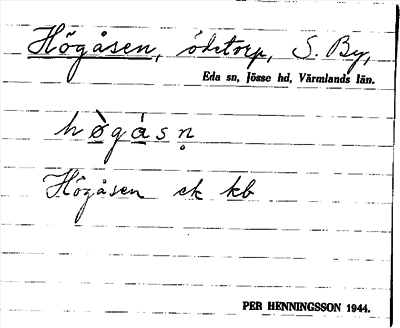 Högåsen, ödetorp, S. By,
Eda sn, Jösse hd, Värmlands län.
hø̀gásn̥
Högåsen ek kb
PER HENNINGSSON 1944.